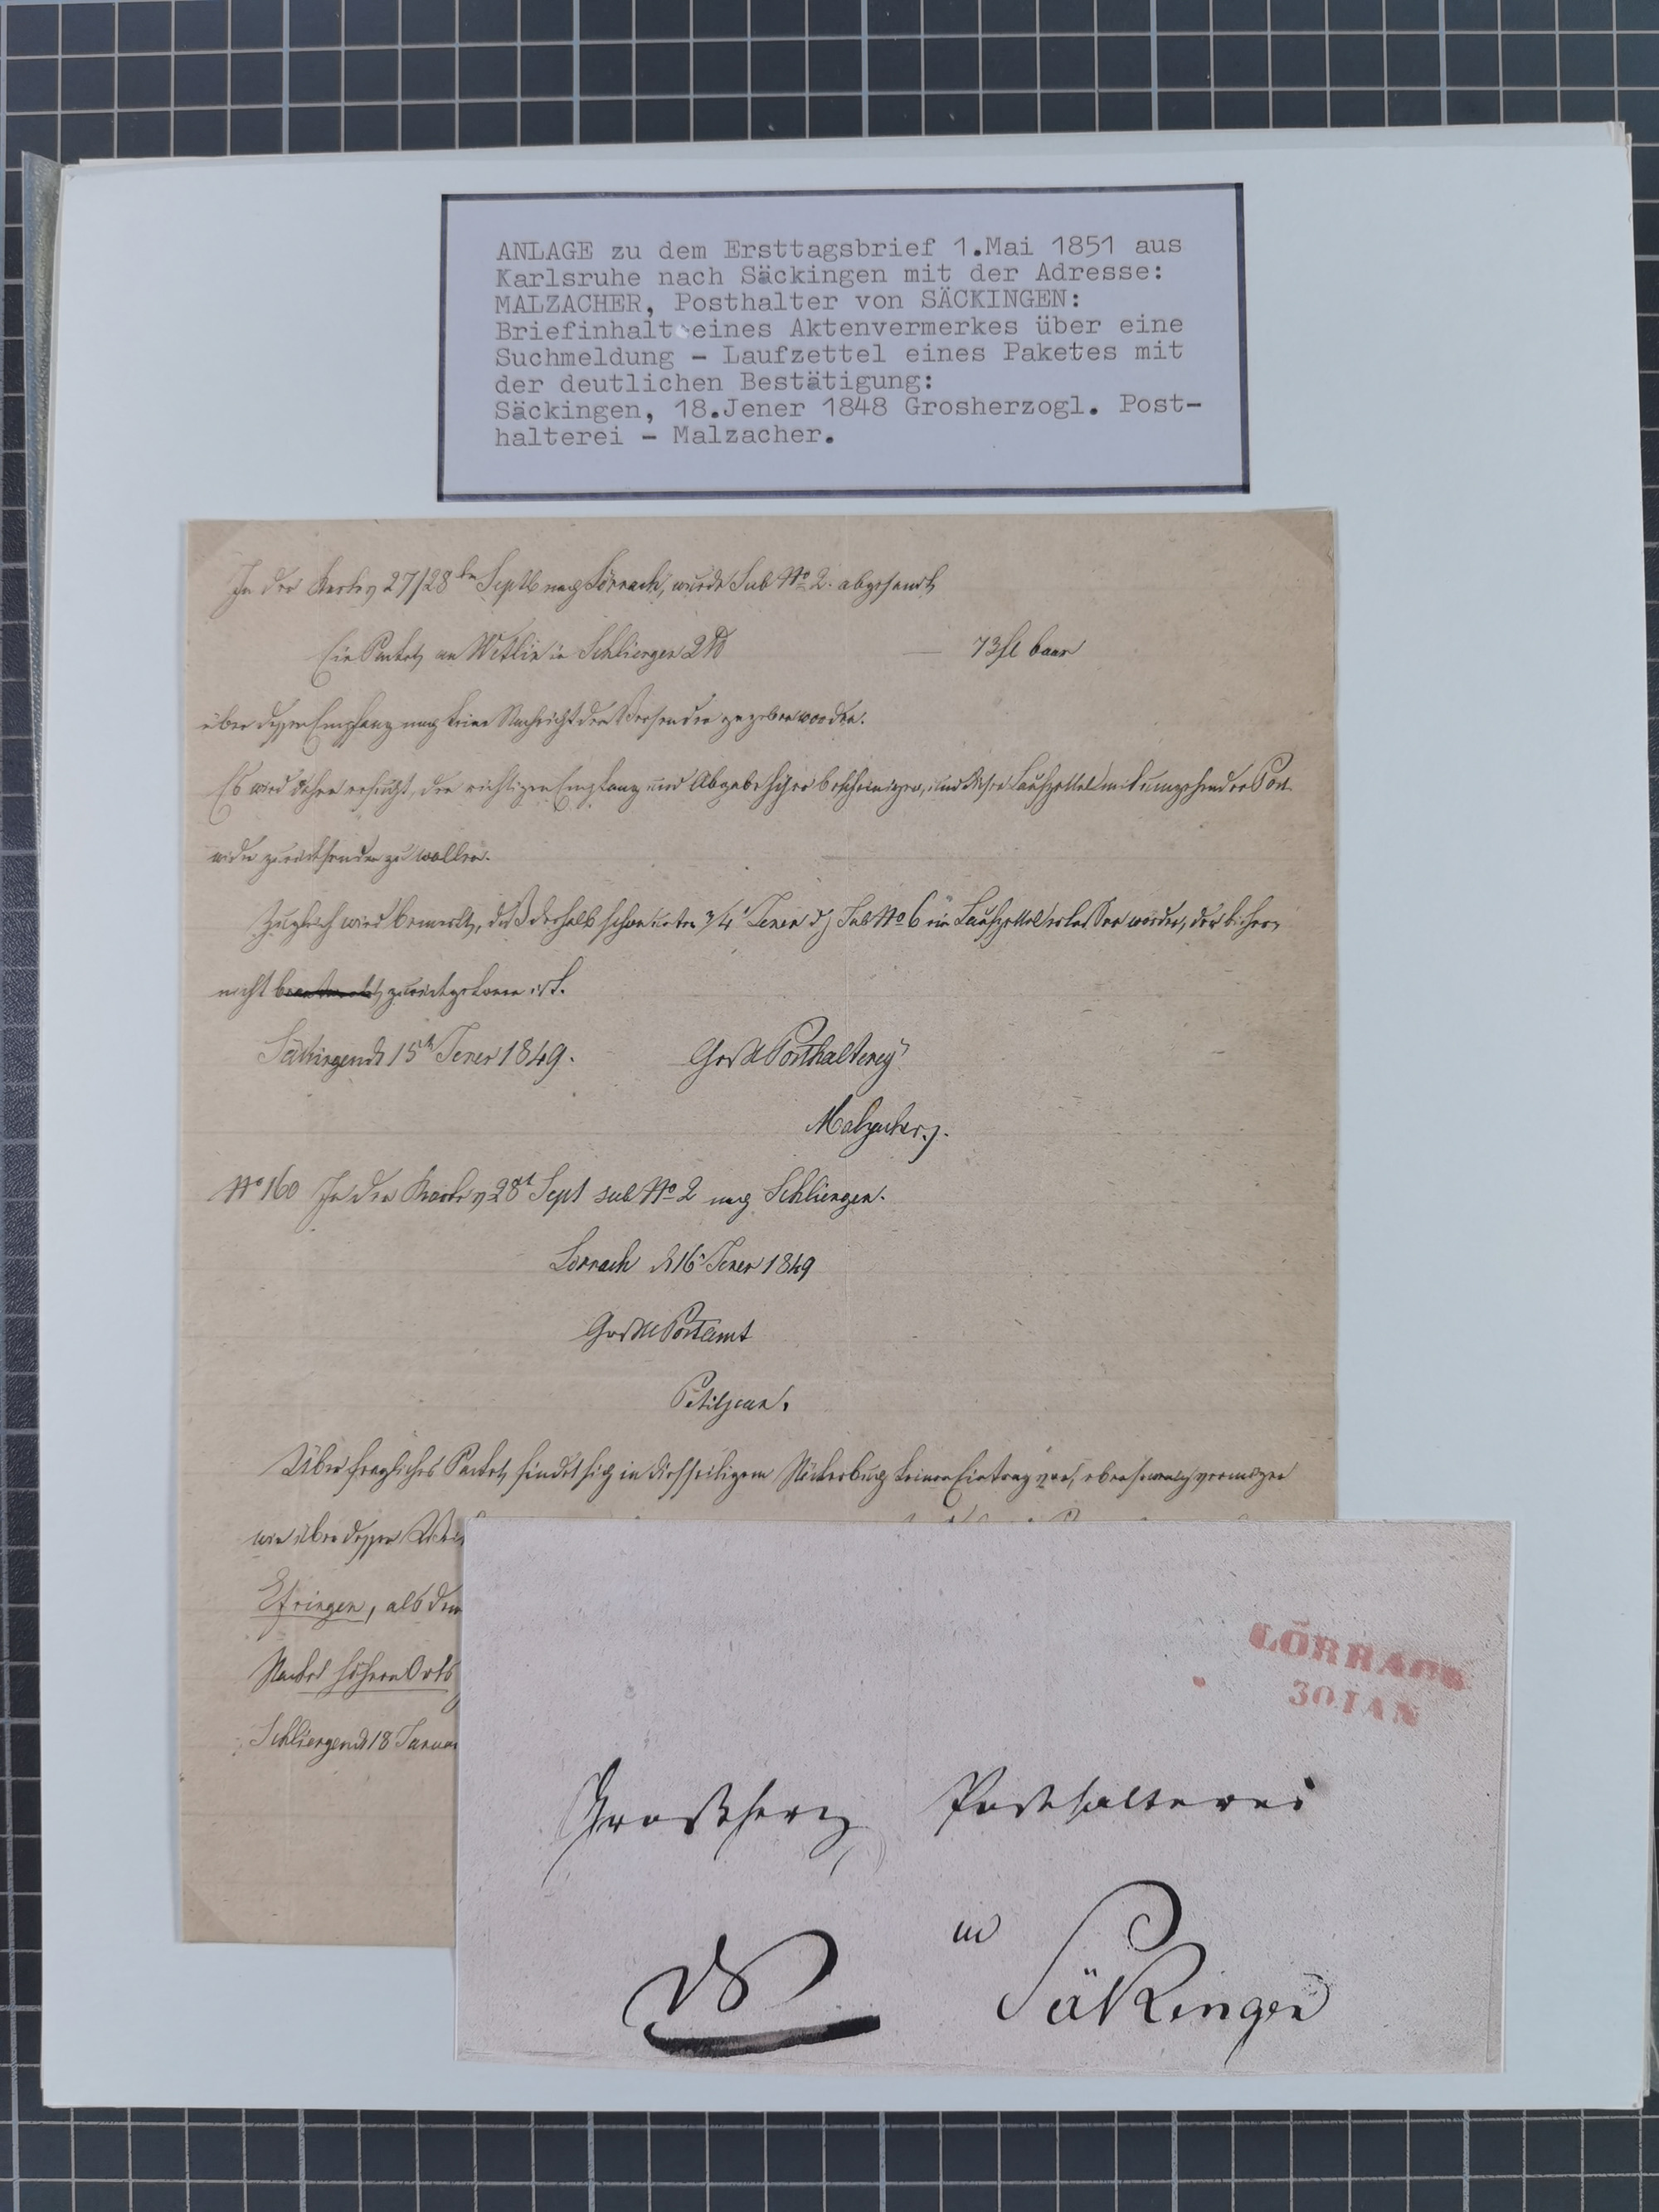 ANLAGE zu dem Ersttagsbrief 1.Mai 1851 aus
Karlsruhe nach Säckingen mit der Adresse:
MALZACHER, Posthalter von SÄCKINGEN:
Briefinhalt eines Aktenvermerkes über eine
Suchmeldung - Laufzettel eines Paketes mit
der deutlichen Bestätigung:
Säckingen, 18.Jener 1848 Grosherzogl. Post-
halterei - Malzacher.
In der Karte v 27/28 Septb nach Lörrach, wurde Sub No 2. abgesandt
Ein Packet an in Schliengen 73 fl baar
über dessen Empfang noch keine Nachricht dem Versender gegeben worden.
Es wird daher ersucht, den richtigen Empfang und Abgabe hier bescheinigen, und diesen Laufzettel mit umgehender Post
wieder zurücksenden zu wollen.
Zugleich wird bemerkt, daß deshalb schon unter 3/4 Jener d J Sub No 6 ein Laufzettel erlassen worden, der bisher
nicht zurückgekommen ist.
Säkingen d 15t Jener 1849.
Posthalterey
Malzacher
No 160 In der Karte v 28t Sept sub No 2 nach Schliengen.
Lörrach d 16 Jener 1849
Postamt
Petitjean.
Über fragliches Packet findet sich in diesseitigem keinen Eintrag vor, ebensowenig vermögen
wir über dessen
Efringen, als dem
höhern Orts
Schliengen d 18 Januar
LÖRRACH
30 JAN
Großherz Posthalterei
in
DS
Säkingen